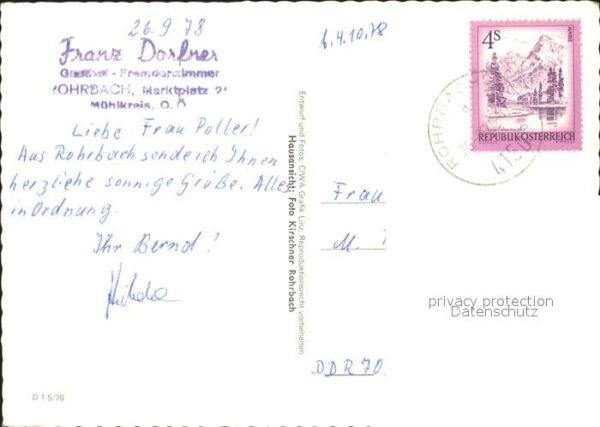 26.9.78
Franz Dorfner
Gasthof - Fremdenzimmer
ROHRBACH, Marktplatz 2
Mühlkreis, O.Ö
Liebe Frau Poller!
Aus Rohrbach sende ich Ihnen
herzliche sonnige Grüße. Alles
in Ordnung.
Ihr Bernd!
D 1-5/76
Entwurf und Fotos: CIWA Grafik Linz, Reproduktionsrecht vorbehalten
Hausansicht: Foto Kirschner Rohrbach
b. 4.10.78
4S
ALMSEE
REPUBLIK ÖSTERREICH
ROHRBACH
4150
Frau
M. i
DDR 70
privacy protection
Datenschutz